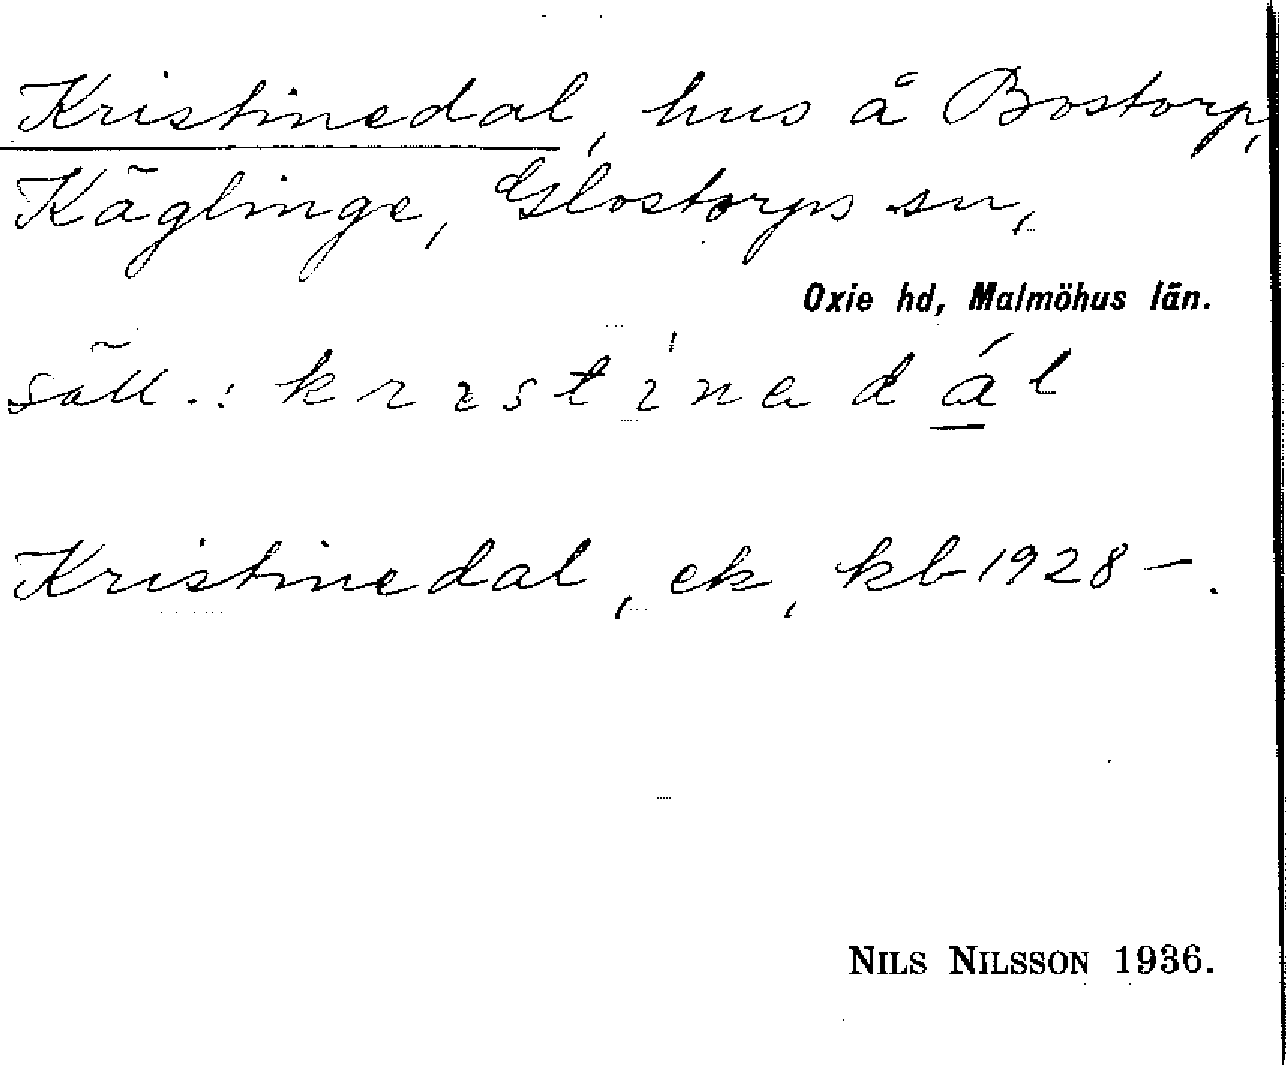 Kristinedal, hus å Bostorp,
Käglinge, Glostorps sn,
Oxie hd, Malmöhus län.
säll.: kristinadál
Kristinedal, ek, kb 1928–.
NILS NILSSON 1936.